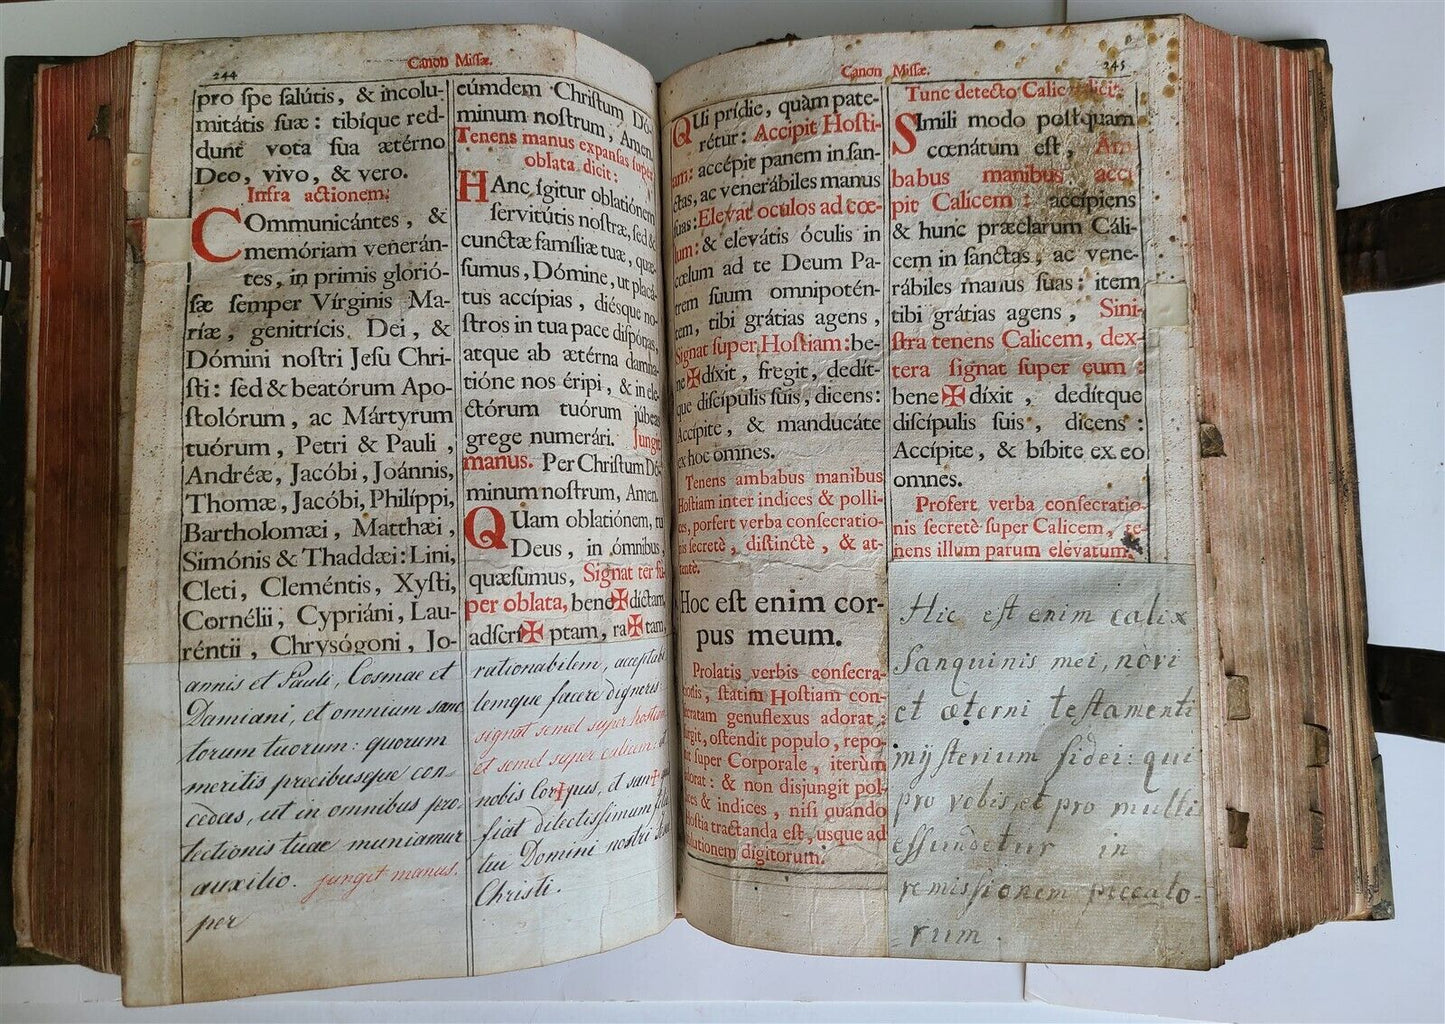 244
Canon Miſſæ.
pro ſpe ſalútis, & incolu-
mitátis ſuæ: tibíque red-
dunt vota ſua ætérno
Deo, vivo, & vero.
Infra actionem:
COmmunicántes, &
memóriam venerán-
tes, in primis glorió-
ſæ ſemper Vírginis Ma-
ríæ, genitrícis Dei, &
Dómini noſtri Jeſu Chri-
ſti: ſed & beatórum Apo-
ſtolórum, ac Mártyrum
tuórum, Petri & Pauli,
Andréæ, Jacóbi, Joánnis,
Thomæ, Jacóbi, Philíppi,
Bartholomæi, Matthæi,
Simónis & Thaddæi: Lini,
Cleti, Cleméntis, Xyſti,
Cornélii, Cypriáni, Lau-
réntii, Chrysógoni, Jo-
annis et Pauli, Cosmae et
Damiani, et omnium sanc
torum tuorum: quorum
meritis precibusque con-
cedas, ut in omnibus pro.
tectionis tuae muniamur
auxilio. jungit manus.
per
eúmdem Chriſtum Dó-
minum noſtrum, Amen.
Tenens manus expanſas ſuper
oblata dicit:
HAnc igitur oblatiónem
ſervitútis noſtræ, ſed &
cunctæ famíliæ tuæ, quæ-
ſumus, Dómine, ut placá-
tus accípias, diéſque no-
ſtros in tua pace diſpónas,
atque ab ætérna damna-
tióne nos éripi, & in ele-
ctórum tuórum júbeas
grege numerári. Jungit
manus. Per Chriſtum Dó-
minum noſtrum, Amen.
QUam oblatiónem, tu
Deus, in ómnibus,
quæſumus, Signat ter ſu-
per oblata, bene✠díctam,
adſcri✠ptam, ra✠tam,
rationabilem, acceptabi
lemque facere digneris:
signat semel super hostiam
et semel super calicem. ut
nobis cor+pus, et san+
fiat dilectiſſimum
tui Domini nostri
Christi.
Canon Miſſæ.
245
QUi prídie, quàm pate-
rétur: Accipit Hoſti-
am: accépit panem in ſan-
ctas, ac venerábiles manus
ſuas: Elevat oculos ad cœ-
lum: & elevátis óculis in
cœlum ad te Deum Pa-
trem ſuum omnipotén-
tem, tibi grátias agens,
Signat ſuper Hoſtiam: be-
ne✠díxit, fregit, dedít-
que diſcípulis ſuis, dicens:
Accípite, & manducáte
ex hoc omnes.
Tenens ambabus manibus
Hoſtiam inter indices & polli-
ces, porfert verba conſecratio-
nis ſecretè, diſtinctè, & at-
tentè.
Hoc eſt enim cor-
pus meum.
Prolatis verbis conſecra-
tionis, ſtatim Hoſtiam con-
ſecratam genuflexus adorat:
ſurgit, oſtendit populo, repo-
nit ſuper Corporale, iterùm
adorat: & non disjungit pol-
lices & indices, niſi quando
Hoſtia tractanda eſt, usque ad
ablutionem digitorum.
Tunc detecto Calice dicit:
SImili modo poſtquam
cœnátum eſt, Am
babus manibus acci
pit Calicem: accípiens
& hunc præclarum Cáli-
cem in ſanctas, ac vene-
rábiles manus ſuas: item
tibi grátias agens, Sini-
ſtra tenens Calicem, dex-
tera ſignat ſuper eum:
bene✠díxit, dedítque
diſcípulis ſuis, dicens:
Accípite, & bíbite ex eo
omnes.
Profert verba conſecratio-
nis ſecretè ſuper Calicem, te-
nens illum parum elevatum.
Hic eſt enim calix
Sanquinis mei, novi
et æterni teſtamenti
myſterium fidei: qui
pro vobis, et pro multi
eſſundetur in
remiſſionem peccato-
rum.